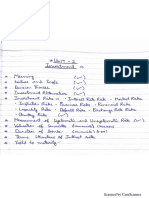 * Unit - I
Investment =
Meaning (✓)
Nature and Scope (✓)
(✓)
Investment Alternatives (✓)
Investment Risks - Interest Rate Risk - Market Risks
- Inflation Risks - Business Risks - Financial Risks
- Liquidity Risks - Default Risks - Exchange Rate Risks
- Country Risks (✓)
Measurement of Systematic and Unsystematic Risks (✓)
Valuation of
Duration of
Term Structure of Interest rate
Yield to maturity
Scanned by CamScanner